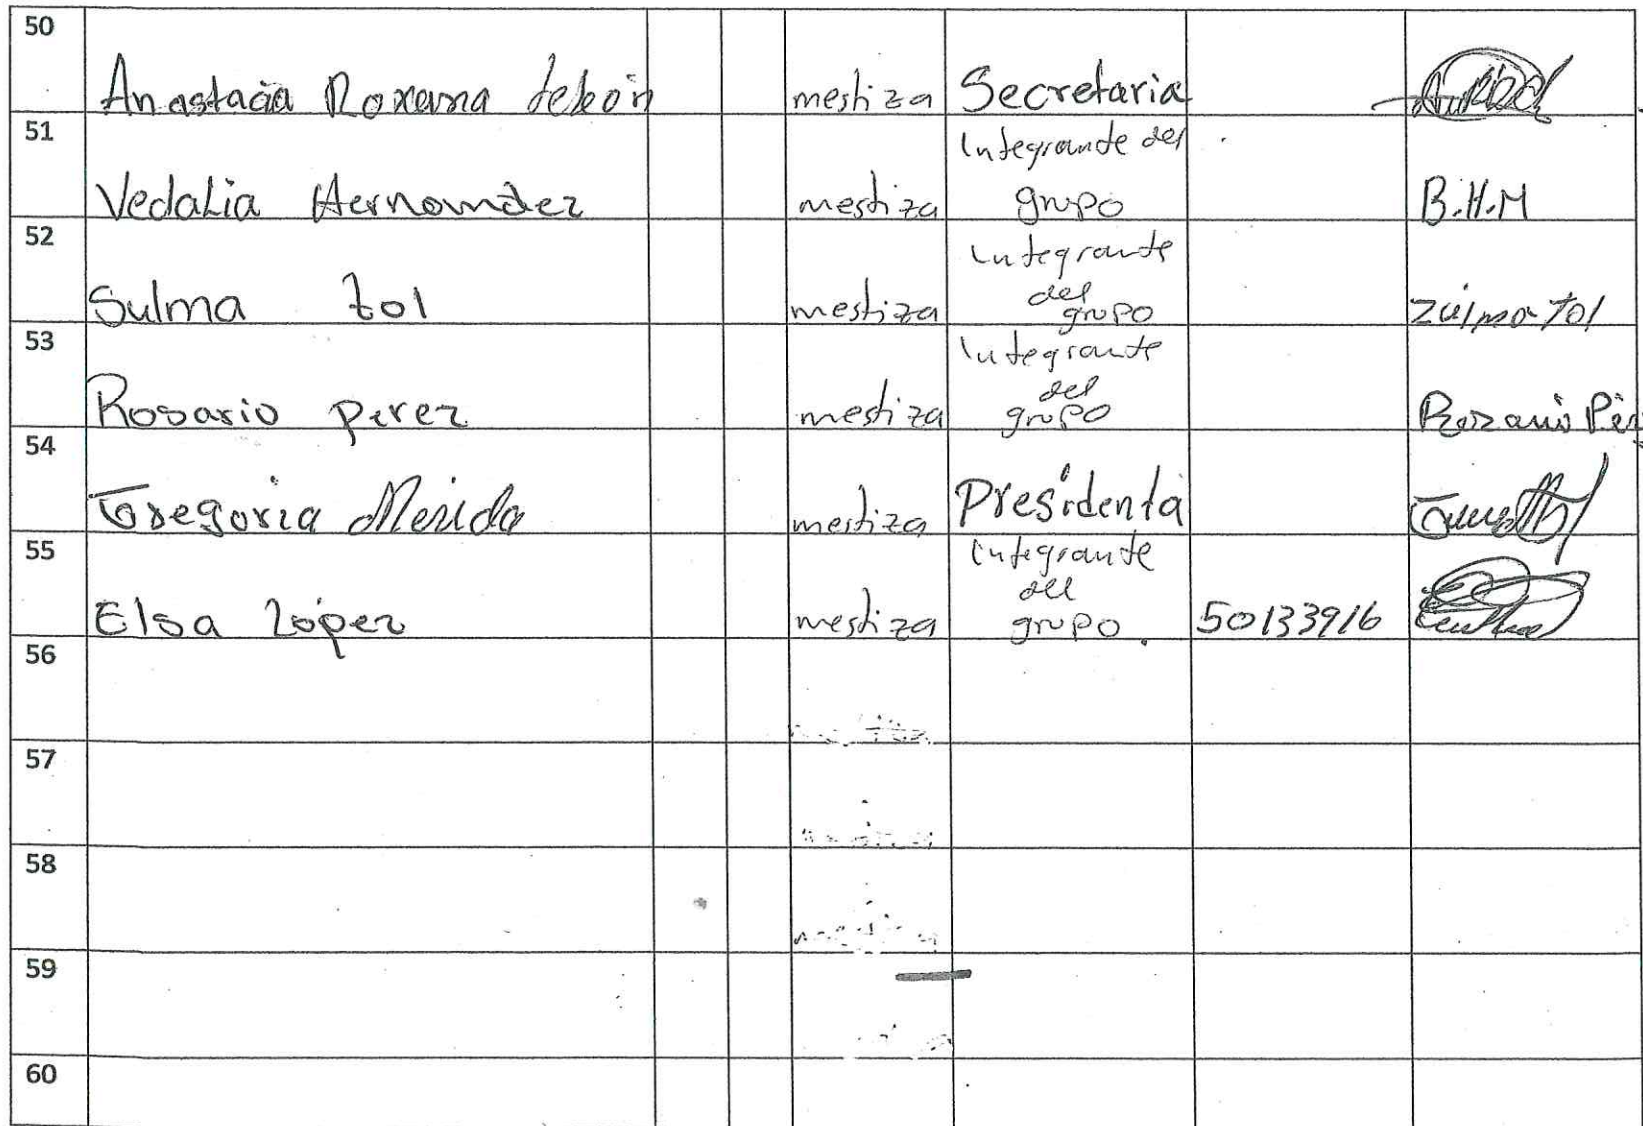 50
Anastacia Roxana
mestiza
Secretaria
51
Vedalia Hernandez
mestiza
Integrante del
grupo
B.H.M
52
Sulma tol
mestiza
Integrante
del
grupo
zulma tol
53
Rosario perez
mestiza
Integrante
del
grupo
54
Gregoria Merida
mestiza
Presidenta
55
Elsa López
mestiza
Integrante
del
grupo.
50133916
56
57
58
59
60